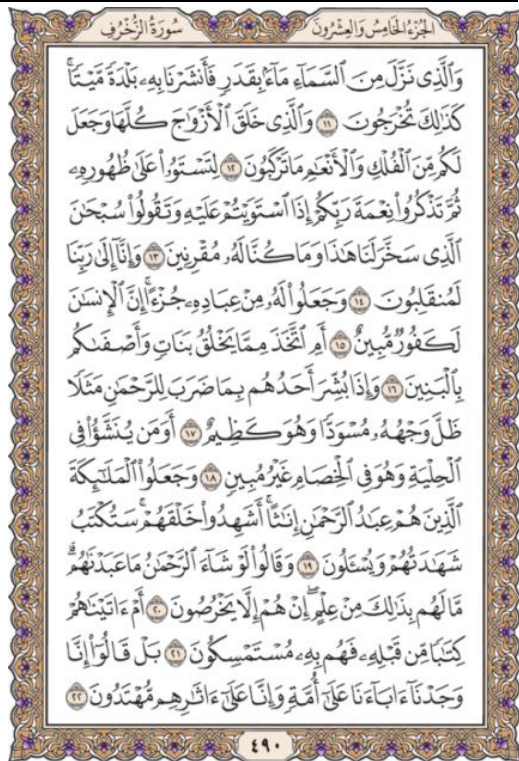 الجُزْءُ الخَامِسُ وَالعِشْرُونَ
سُورَةُ الزُّخْرُفِ
وَٱلَّذِى نَزَّلَ مِنَ ٱلسَّمَآءِ مَآءَۢ بِقَدَرٖ فَأَنشَرۡنَا بِهِۦ بَلۡدَةٗ مَّيۡتٗاۚ
كَذَٰلِكَ تُخۡرَجُونَ ١١ وَٱلَّذِى خَلَقَ ٱلۡأَزۡوَٰجَ كُلَّهَا وَجَعَلَ
لَكُم مِّنَ ٱلۡفُلۡكِ وَٱلۡأَنۡعَٰمِ مَا تَرۡكَبُونَ ١٢ لِتَسۡتَوُۥاْ عَلَىٰ ظُهُورِهِۦ
ثُمَّ تَذۡكُرُواْ نِعۡمَةَ رَبِّكُمۡ إِذَا ٱسۡتَوَيۡتُمۡ عَلَيۡهِ وَتَقُولُواْ سُبۡحَٰنَ
ٱلَّذِى سَخَّرَ لَنَا هَٰذَا وَمَا كُنَّا لَهُۥ مُقۡرِنِينَ ١٣ وَإِنَّآ إِلَىٰ رَبِّنَا
لَمُنقَلِبُونَ ١٤ وَجَعَلُواْ لَهُۥ مِنۡ عِبَادِهِۦ جُزۡءًاۚ إِنَّ ٱلۡإِنسَٰنَ
لَكَفُورٞ مُّبِينٌ ١٥ أَمِ ٱتَّخَذَ مِمَّا يَخۡلُقُ بَنَاتٖ وَأَصۡفَىٰكُم
بِٱلۡبَنِينَ ١٦ وَإِذَا بُشِّرَ أَحَدُهُم بِمَا ضَرَبَ لِلرَّحۡمَٰنِ مَثَلٗا
ظَلَّ وَجۡهُهُۥ مُسۡوَدّٗا وَهُوَ كَظِيمٌ ١٧ أَوَمَن يُنَشَّؤُاْ فِى
ٱلۡحِلۡيَةِ وَهُوَ فِى ٱلۡخِصَامِ غَيۡرُ مُبِينٖ ١٨ وَجَعَلُواْ ٱلۡمَلَٰٓئِكَةَ
ٱلَّذِينَ هُمۡ عِبَٰدُ ٱلرَّحۡمَٰنِ إِنَٰثًاۚ أَشَهِدُواْ خَلۡقَهُمۡۚ سَتُكۡتَبُ
شَهَٰدَتُهُمۡ وَيُسۡـَٔلُونَ ١٩ وَقَالُواْ لَوۡ شَآءَ ٱلرَّحۡمَٰنُ مَا عَبَدۡنَٰهُمۗ
مَّا لَهُم بِذَٰلِكَ مِنۡ عِلۡمٍۖ إِنۡ هُمۡ إِلَّا يَخۡرُصُونَ ٢٠ أَمۡ ءَاتَيۡنَٰهُمۡ
كِتَٰبٗا مِّن قَبۡلِهِۦ فَهُم بِهِۦ مُسۡتَمۡسِكُونَ ٢١ بَلۡ قَالُوٓاْ إِنَّا
وَجَدۡنَآ ءَابَآءَنَا عَلَىٰٓ أُمَّةٖ وَإِنَّا عَلَىٰٓ ءَاثَٰرِهِم مُّهۡتَدُونَ ٢٢
٤٩٠